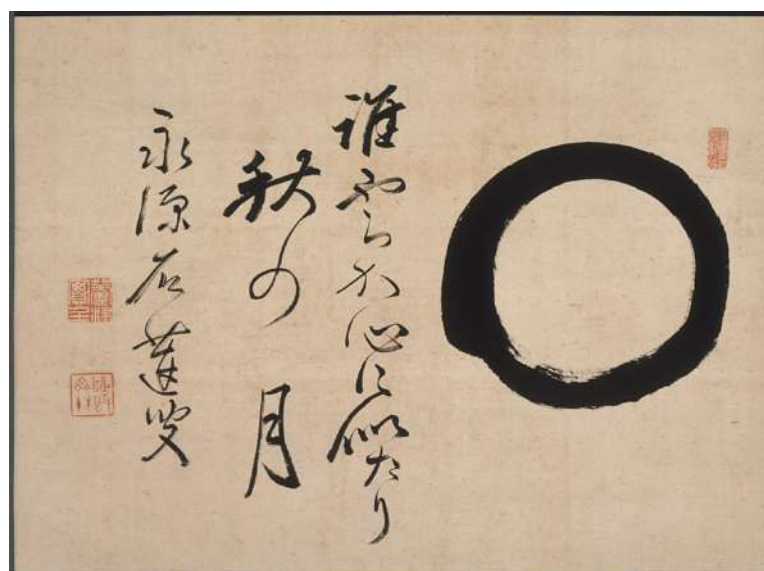 誰やらか心に似たり
秋の月
永源石蓮叟